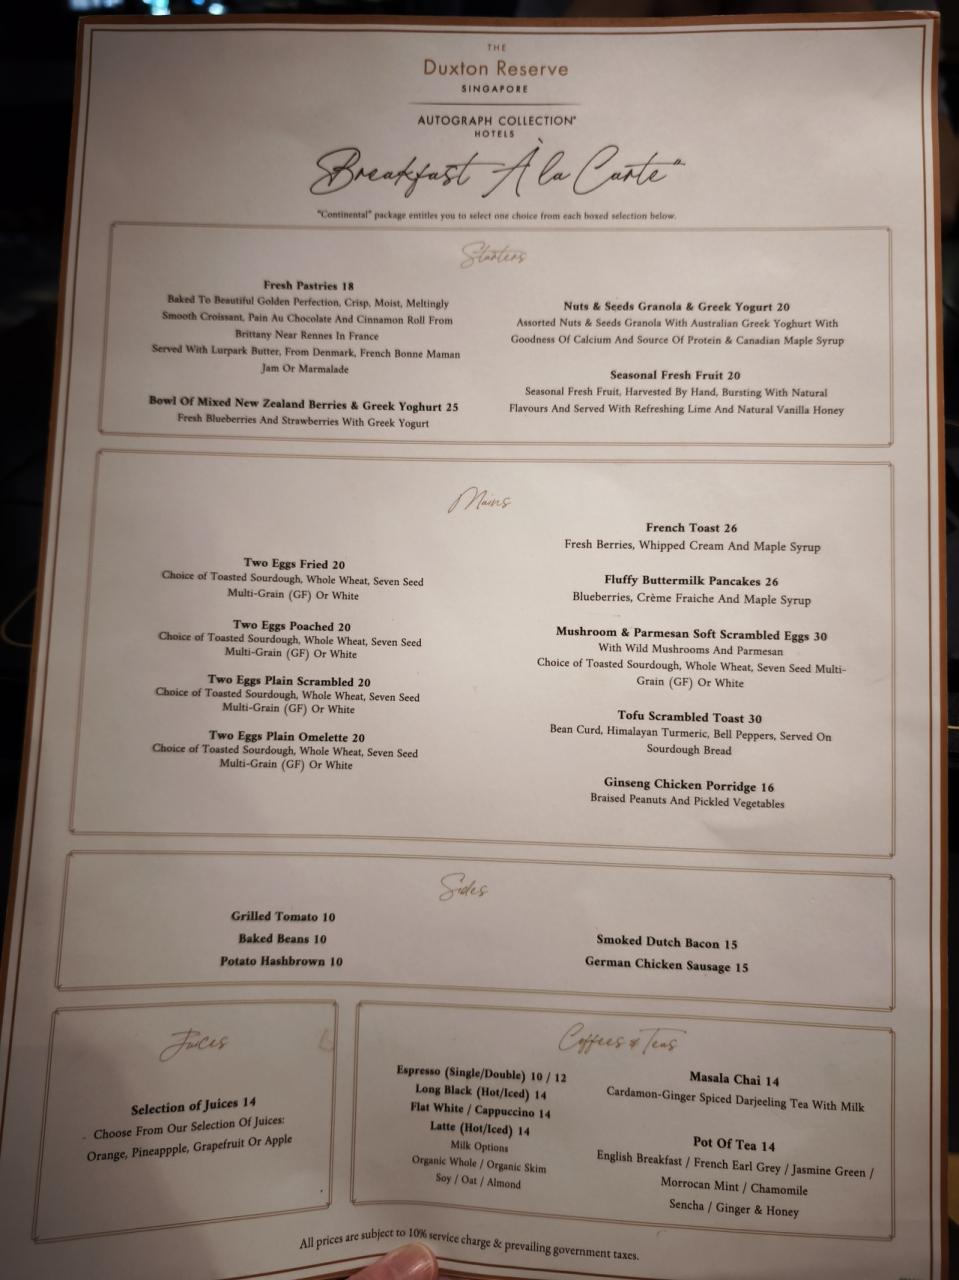 THE
Duxton Reserve
SINGAPORE
AUTOGRAPH COLLECTION®
HOTELS
Breakfast À la Carte"
"Continental" package entitles you to select one choice from each boxed selection below.
Starters
Fresh Pastries 18
Baked To Beautiful Golden Perfection, Crisp, Moist, Meltingly
Smooth Croissant, Pain Au Chocolate And Cinnamon Roll From
Brittany Near Rennes In France
Served With Lurpark Butter, From Denmark, French Bonne Maman
Jam Or Marmalade
Bowl Of Mixed New Zealand Berries & Greek Yoghurt 25
Fresh Blueberries And Strawberries With Greek Yogurt
Nuts & Seeds Granola & Greek Yogurt 20
Assorted Nuts & Seeds Granola With Australian Greek Yoghurt With
Goodness Of Calcium And Source Of Protein & Canadian Maple Syrup
Seasonal Fresh Fruit 20
Seasonal Fresh Fruit, Harvested By Hand, Bursting With Natural
Flavours And Served With Refreshing Lime And Natural Vanilla Honey
Mains
Two Eggs Fried 20
Choice of Toasted Sourdough, Whole Wheat, Seven Seed
Multi-Grain (GF) Or White
Two Eggs Poached 20
Choice of Toasted Sourdough, Whole Wheat, Seven Seed
Multi-Grain (GF) Or White
Two Eggs Plain Scrambled 20
Choice of Toasted Sourdough, Whole Wheat, Seven Seed
Multi-Grain (GF) Or White
Two Eggs Plain Omelette 20
Choice of Toasted Sourdough, Whole Wheat, Seven Seed
Multi-Grain (GF) Or White
French Toast 26
Fresh Berries, Whipped Cream And Maple Syrup
Fluffy Buttermilk Pancakes 26
Blueberries, Crème Fraiche And Maple Syrup
Mushroom & Parmesan Soft Scrambled Eggs 30
With Wild Mushrooms And Parmesan
Choice of Toasted Sourdough, Whole Wheat, Seven Seed Multi-
Grain (GF) Or White
Tofu Scrambled Toast 30
Bean Curd, Himalayan Turmeric, Bell Peppers, Served On
Sourdough Bread
Ginseng Chicken Porridge 16
Braised Peanuts And Pickled Vegetables
Sides
Grilled Tomato 10
Baked Beans 10
Potato Hashbrown 10
Smoked Dutch Bacon 15
German Chicken Sausage 15
Juices
Selection of Juices 14
Choose From Our Selection Of Juices:
Orange, Pineappple, Grapefruit Or Apple
Coffees & Teas
Espresso (Single/Double) 10 / 12
Long Black (Hot/Iced) 14
Flat White / Cappuccino 14
Latte (Hot/Iced) 14
Milk Options
Organic Whole / Organic Skim
Soy / Oat / Almond
Masala Chai 14
Cardamon-Ginger Spiced Darjeeling Tea With Milk
Pot Of Tea 14
English Breakfast / French Earl Grey / Jasmine Green /
Morrocan Mint / Chamomile
Sencha / Ginger & Honey
All prices are subject to 10% service charge & prevailing government taxes.